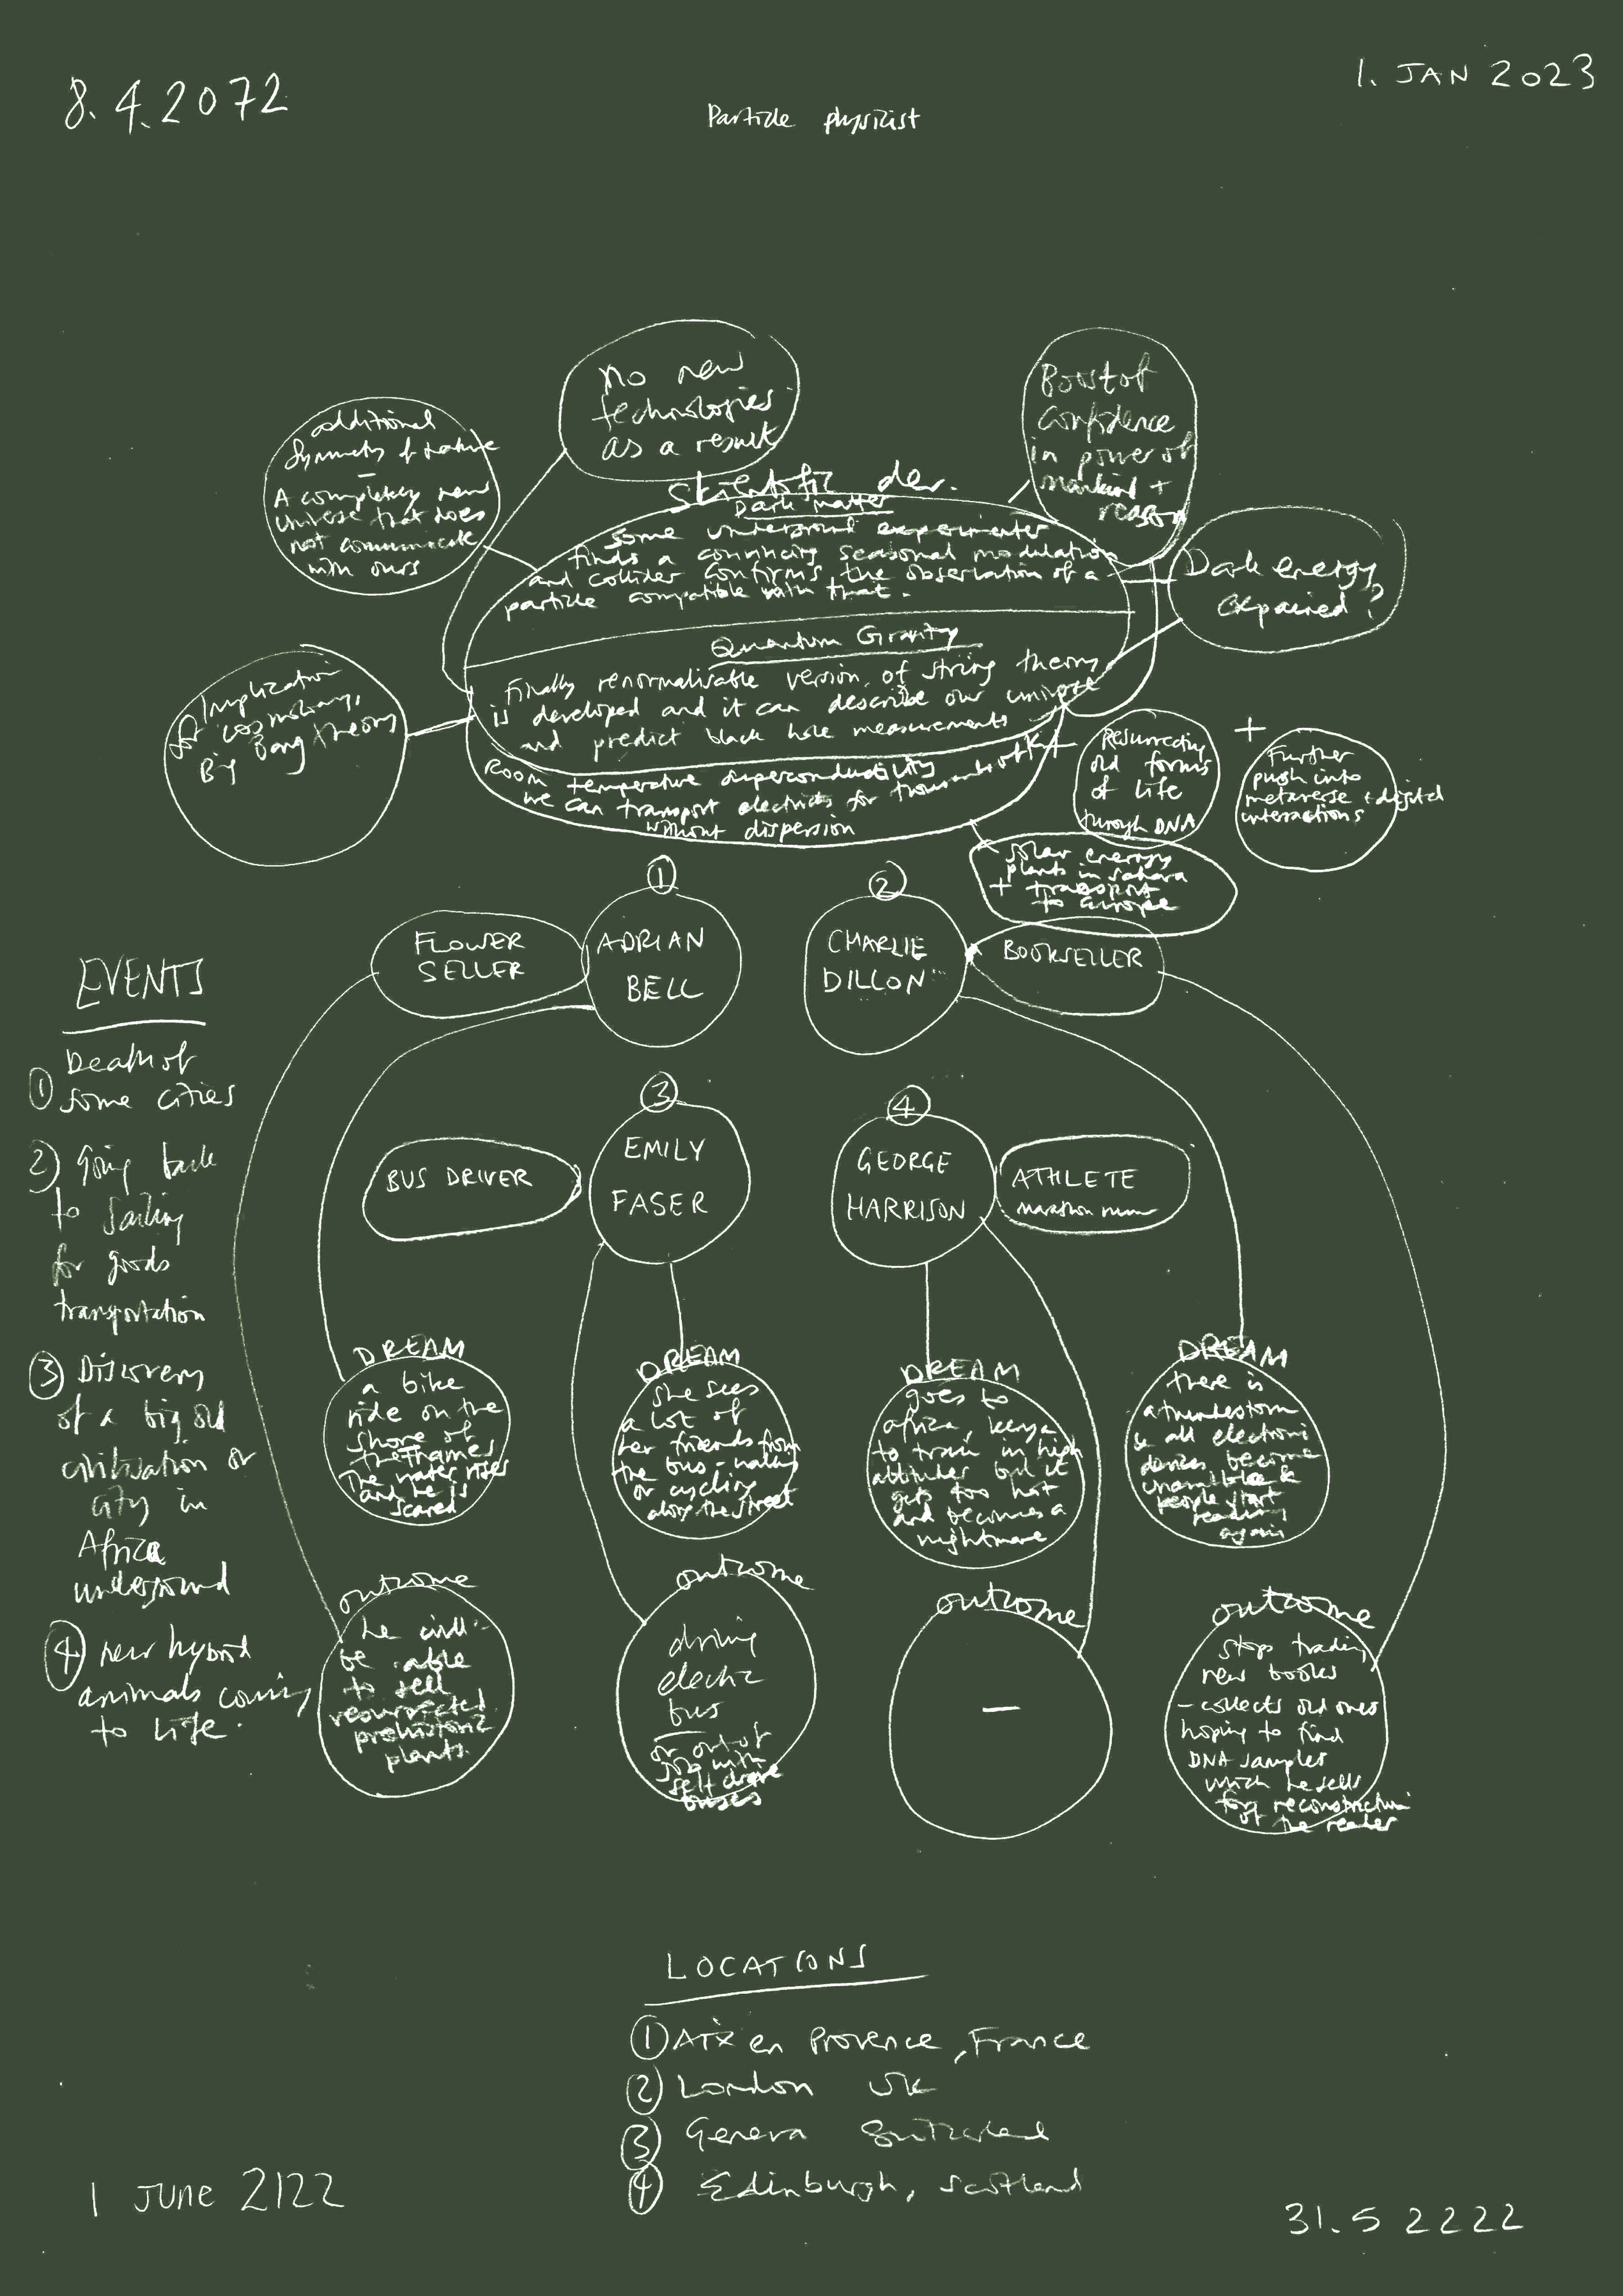 8.4.2072
1. JAN 2023
Particle physicist
no new
technologies
as a result
Boost of
confidence
in power of
mankind +
reason
additional
Symmetry of nature
–
A completely new
Universe that does
not communicate
with ours
Scientific dev.
Dark Matter
some underground experimenter
finds a convincing seasonal modulation
and collider confirms the observation of a
particle compatible with that.
Dark energy
expained?
Quantum Gravity
Finally renormalisable version of string theory
is developed and it can describe our universe
and predict black hole measurements
Implication
for cosmology,
Big bang theory
Room temperature superconductibility
we can transport electricity for
without dispersion
Resurrecting
old forms
of life
through DNA
+
Further
push into
metaverse + digital
interactions
Solar energy
plants in sahara
+ transport
to europe
①
FLOWER
SELLER
ADRIAN
BELL
②
CHARLIE
DILLON
BOOKSELLER
③
BUS DRIVER
EMILY
FASER
④
GEORGE
HARRISON
ATHLETE
marathon runner
EVENTS
① Death of
some cities
2) Going back
to sailing
for goods
transportation
③ Discovery
of a big old
civilisation or
city in
Africa
underground
④ new hybrid
animals coming
to life.
DREAM
a bike
ride on the
shore of
the Thames
The water rises
and he is
scared
DREAM
she sees
a lot of
her friends from
the bus - walking
or cycling
along the street
DREAM
goes to
africa, kenya
to train in high
altitudes but it
gets too hot
and becomes a
nightmare
DREAM
there is
a thunderstorm
& all electronic
devices become
&
people start
reading
again
outcome
he will
be able
to sell
resurrected
prehistoric
plants.
outcome
driving
electric
bus
or out of
job with
self drive
buses
outcome
–
outcome
stops trading
new books
– collects old ones
hoping to find
DNA samples
which he sells
for reconstruction
of the reader
LOCATIONS
① Aix en Provence, France
② London UK
③ Geneva Switzerland
④ Edinburgh, Scotland
1 JUNE 2122
31.5 2222